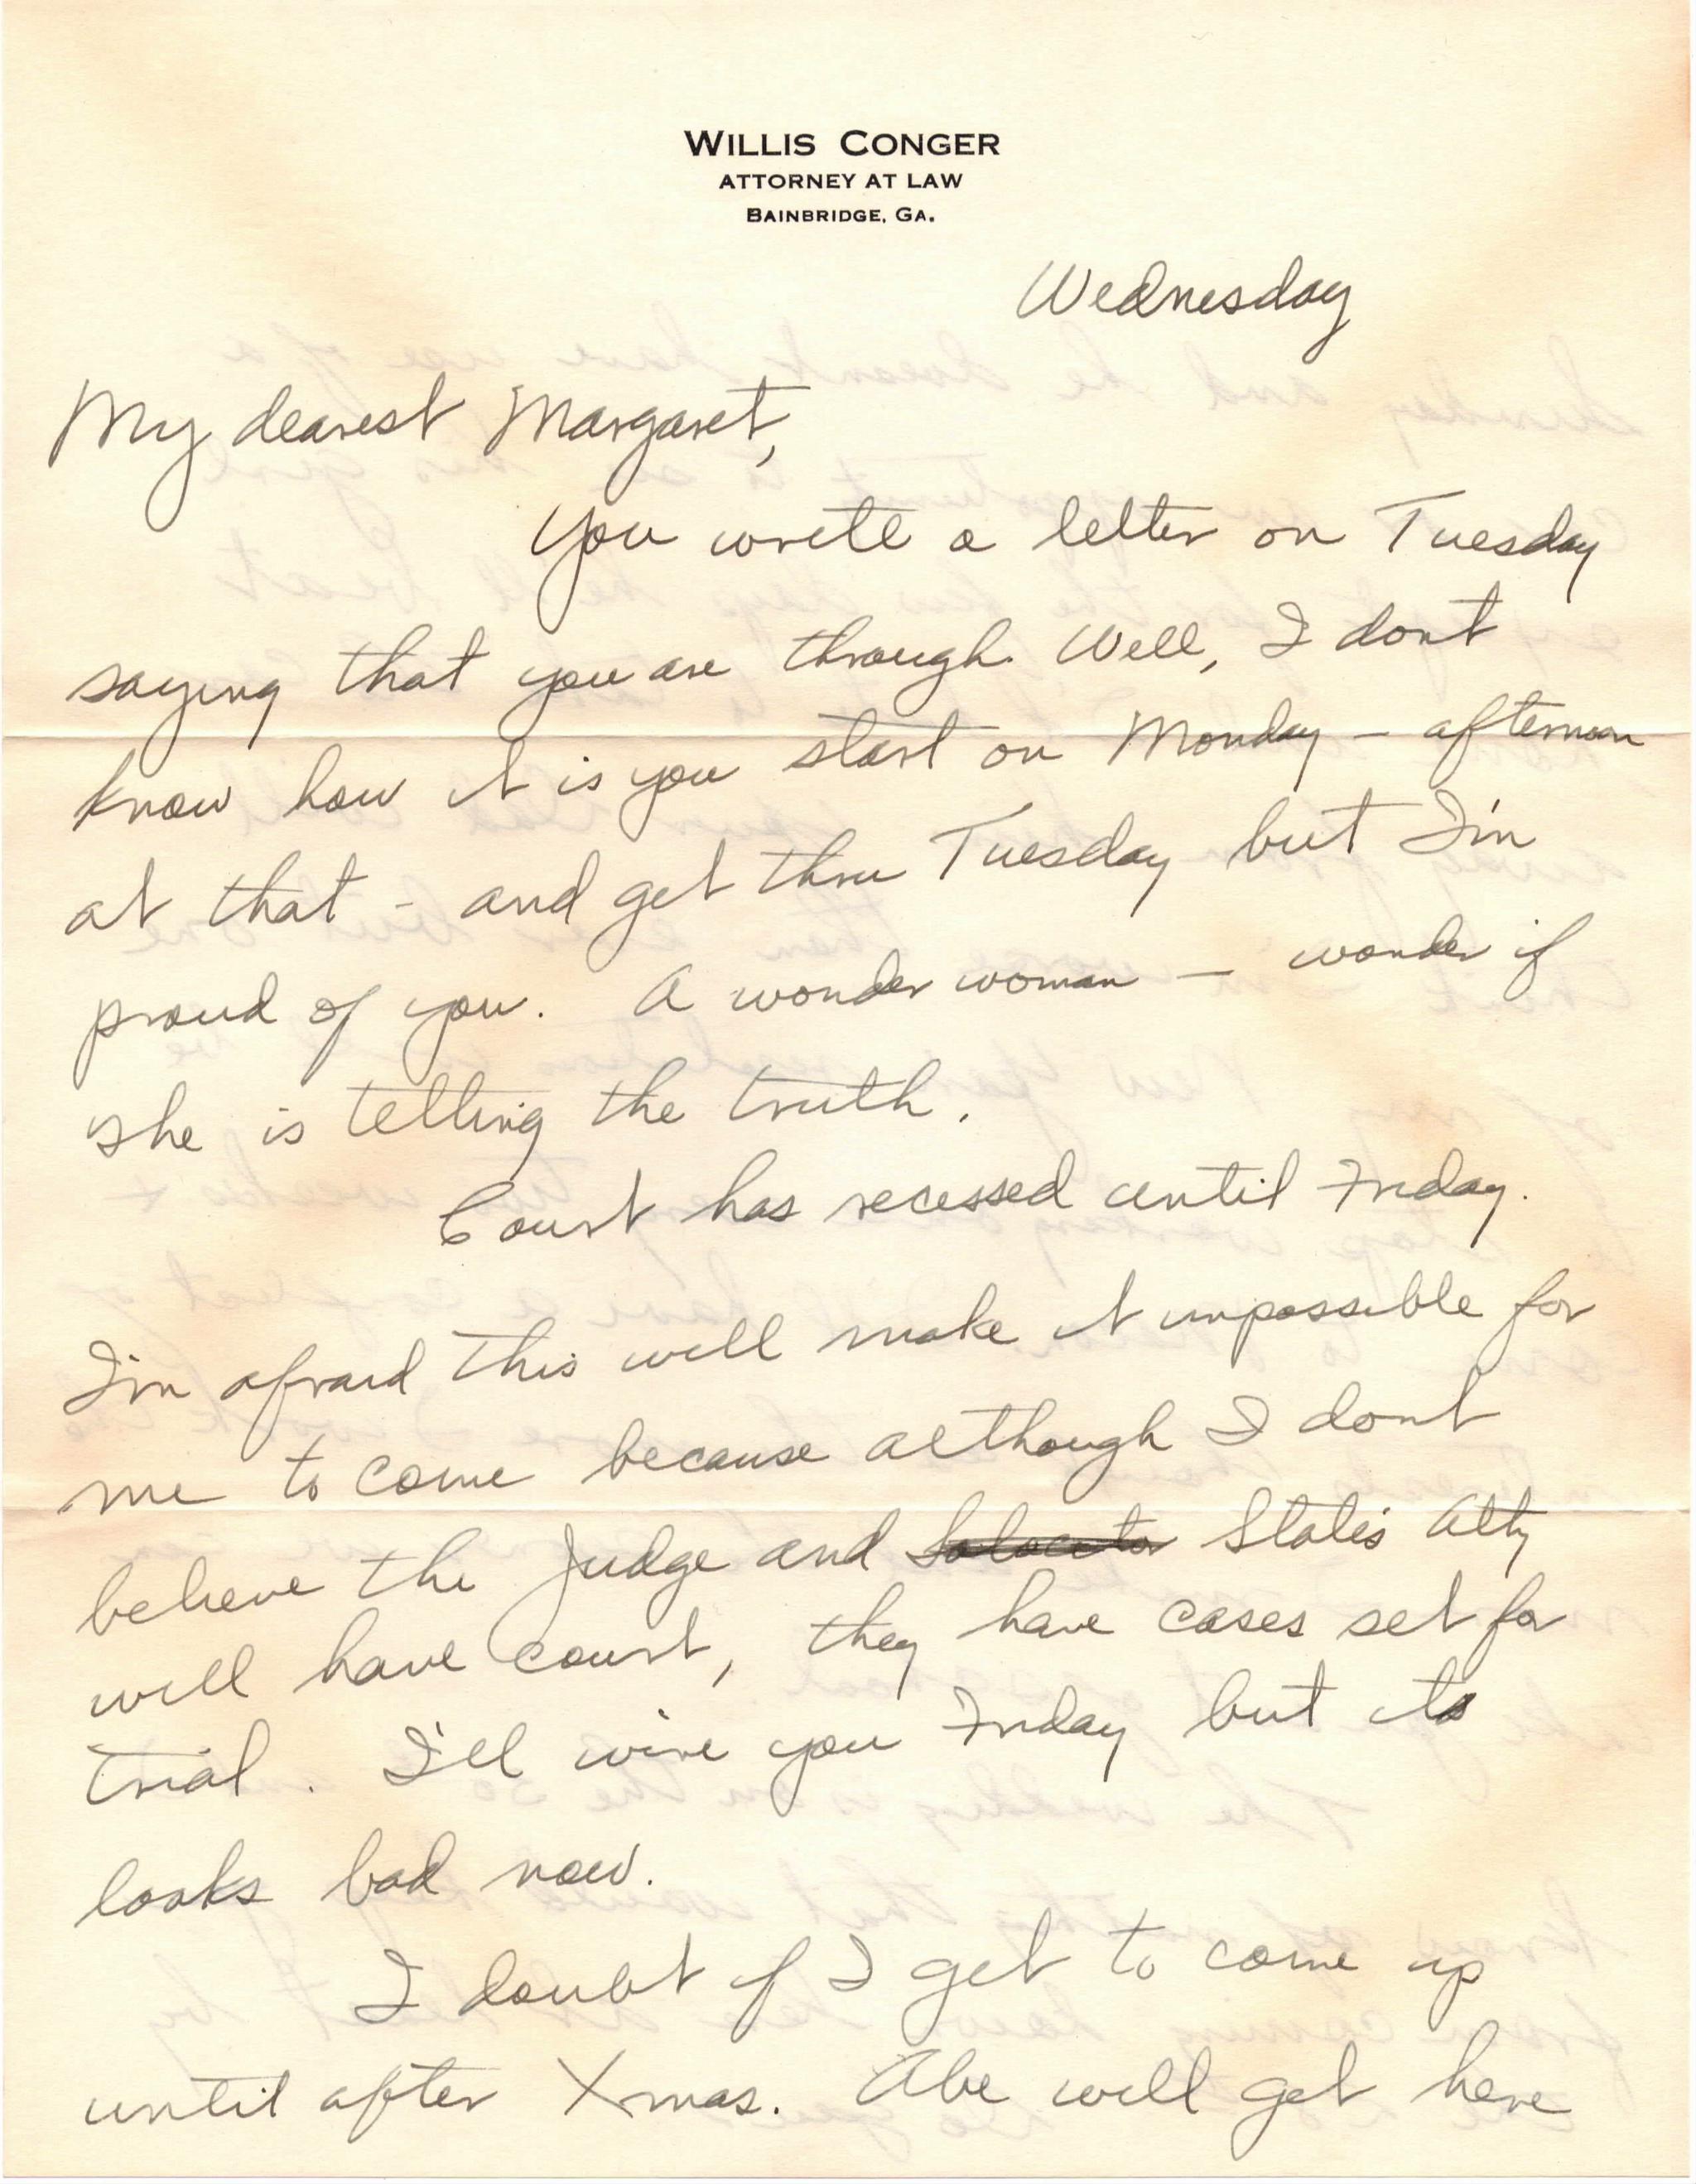 WILLIS CONGER
ATTORNEY AT LAW
BAINBRIDGE, GA.
Wednesday
My dearest Margaret,
You wrote a letter on Tuesday
saying that you are through. Well, I dont
know how it is you start on Monday – afternoon
at that – and get thru Tuesday but I'm
proud of you. A wonder woman – wonder if
she is telling the truth.
Court has recessed until Friday.
I'm afraid this will make it impossible for
me to come because although I dont
believe the Judge and State's Atty
will have court, they have cases set for
trial. I'll wire you Friday but its
looks bad now.
I doubt if I get to come up
until after Xmas. Abe will get here